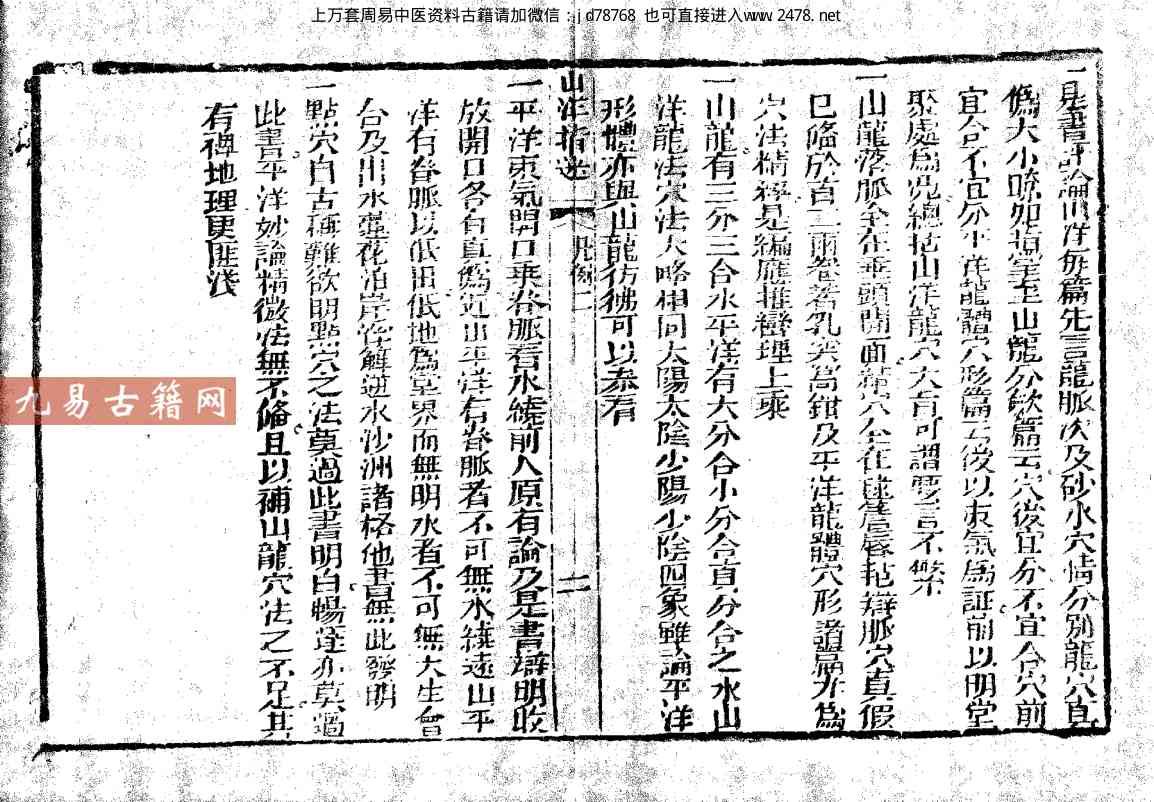 上万套周易中医资料古籍请加微信：jd78768 也可直接进入www.2478.net
一是書評論山洋每篇先言龍脈次及砂水穴情分別龍穴真
偽大小瞭如指掌至山龍分斂篇云穴後宜分不宜合穴前
宜合不宜分平洋龍體穴形篇云後以束氣為証前以明堂
聚處為況總括山洋龍穴大旨可謂要言不繁
一山龍落脈全在垂頭開面結穴全在毬簷唇毡辯脈穴真假
已備於首二兩卷若乳突窩鉗及平洋龍體穴形諸篇尤為
穴法精粹是編應推巒理上乘
一山龍有三分三合水平洋有大分合小分合真分合之水山
洋龍法穴法大略相同太陽太陰少陽少陰四象雖論平洋
形體亦與山龍彷彿可以叅看
山洋指迷 凡例 二
一平洋束氣開口乘脊脈看水繞前人原有論乃是書辯明收
放開口各有真偽近山平洋有脊脈者不可無水繞遠山平
洋有脊脈以低田低地為堂界而無明水者不可無大生會
合及出水蓮花泊岸浮簰逆水沙洲諸格他書無此發明
一點穴自古稱難欲明點穴之法莫過此書明白暢達亦莫過
此書平洋妙論精微法無不備且以補山龍穴法之不足其
有裨地理更匪淺
九易古籍网